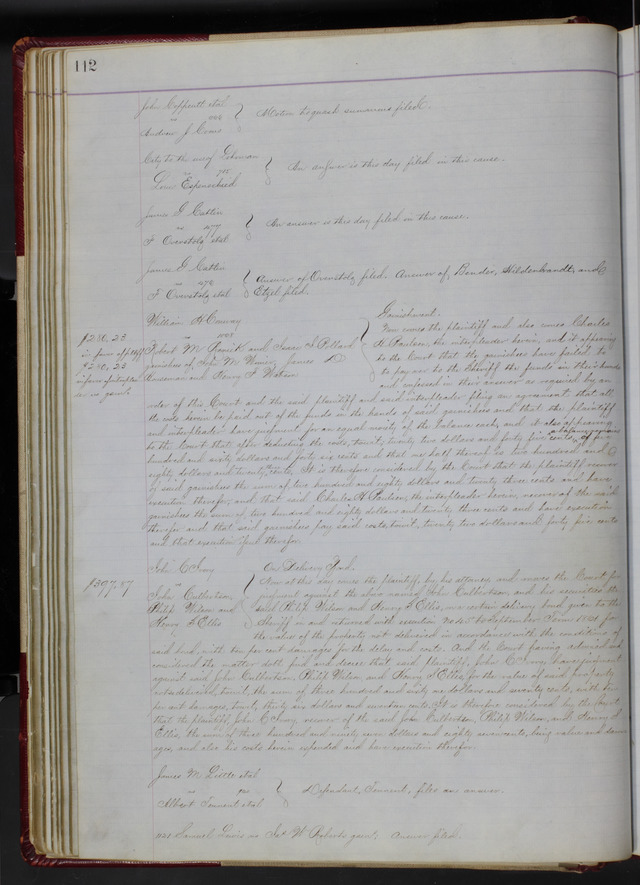 112
John
Motion to quash summons filed.
vs
Andrew J
City to the use of
An answer is this day filed in this cause.
vs
Louis Espenschied
James G Cattin
An answer is this day filed in this cause.
vs 477
F et al
James G Cattin
Answer of filed. Answer of Bender, Hildenbrandt, and
vs 478
F et al Etzel filed.
William H Conway
Garnishment.
vs
Now comes the plaintiff and also comes Charles
$280.23
Robert M and Isaac S Pollard
H. Paulsen, the interpleader herein, and it appearing
garnishees of John M James
to the Court that the garnishees have failed to
$280.23
and Henry F Watson
to pay over to the Sheriff the funds in their hands
in favor of interpleader
and confessed in their answer as required by an
order of this Court and the said plaintiff and said interpleader filing an agreement that all
the costs herein be paid out of the funds in the hands of said garnishees and that the plaintiff
and interpleader have judgment for an equal moity of the balance each, and it also appearing
to the Court that after deducting the costs, towit, twenty two dollars and forty five cents, of five
hundred and sixty dollars and forty six cents and that one half thereof is two hundred and
eighty dollars and twenty three cents, It is therefore considered by the Court that the plaintiff recover
of said garnishees the sum of two hundred and eighty dollars and twenty three cents and have
execution therefor, and that said Charles H Paulsen, the interpleader herein, recover of the said
garnishees the sum of two hundred and eighty dollars and twenty three cents and have execution
therefor and that said garnishees pay said costs, towit, twenty two dollars and forty five cents
and that execution issue therefor.
John C Ivory
On Delivery Bond.
$397.87
vs
Now at this day comes the plaintiff, by his attorney, and moves the Court for
John Culbertson,
judgment against the above named John Culbertson, and his securities the
Philip Wilson and
said Philip Wilson and Henry F Ellis, on a certain delivery bond given to the
Henry F Ellis
Sheriff in and returned with execution No 45 to September Term 1881 for
the value of the property not delivered in accordance with the conditions of
said bond, with ten per cent damages for the delay and costs. And the Court having advised and
considered the matter doth find and decree that said plaintiff, John C Ivory, have judgment
against said John Culbertson, Philip Wilson and Henry F Ellis for the value of said property
undelivered, towit, the sum of three hundred and sixty one dollars and seventy cents, with ten
per cent damages, towit, thirty six dollars and seventeen cents. It is therefore considered by the Court
that the plaintiff, John C Ivory, recover of the said John Culbertson, Philip Wilson, and Henry F
Ellis, the sum of three hundred and ninety seven dollars and eighty seven cents, being value and dam-
ages, and also his costs herein expended and have execution therefor.
James M et al
vs
Defendant, Tennent, files an answer.
Albert Tennent et al
Samuel Davis vs Jas W Roberts Answer filed.